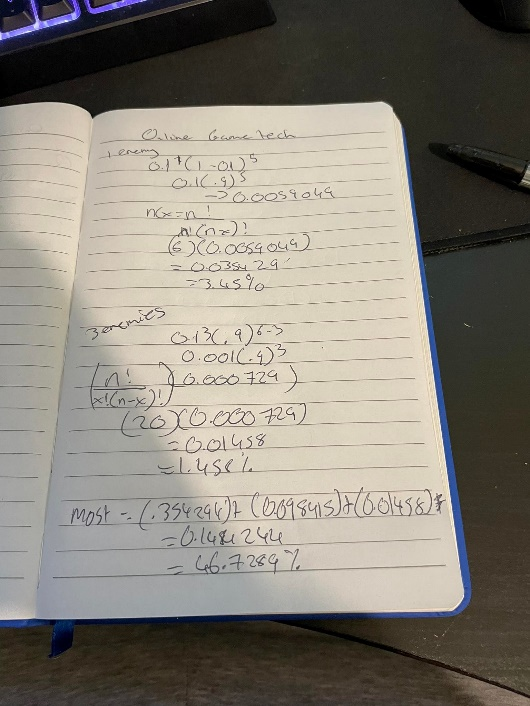 Online Game Tech
1 enemy
0.1¹(1-01)⁵
0.1(.9)⁵
→ 0.0059049
nCx = n!
n!(n-x)!
(6)(0.0059049)
= 0.035429
= 3.45%
3 enemies
0.1³(.9)⁶⁻³
0.001(.9)³
(n! / x!(n-x)!) 0.000729)
(20)(0.000729)
= 0.01458
= 1.458%
most = (.354294)+(0.098415)+(0.01458)+
= 0.1484244
= 46.7289%